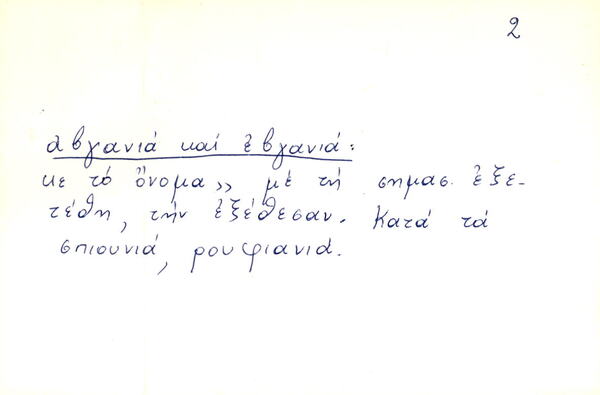 2
ἀβγανιά καί ἐβγανιά:
κε τό ὄνομα» μέ τή σημασ. ἐξε-
τέθη, τήν ἐξέθεσαν. Κατά τά
σπιουνιά, ρουφιανιά.